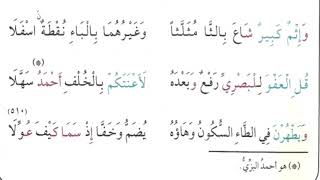 وَإِثْمٌ كَبِيرٌ شَاعَ بِالثَّا مُثَلَّثاً وَغَيْرُهُمَا بِالْبَاءِ نُقْطَةٌ اسْفَلَا
(*)
قُلِ الْعَفْوَ لِلْبَصْرِيِّ رَفْعٌ وَبَعْدَهُ لَأَعْنَتَكُمْ بِالْخُلْفِ أَحْمَدُ سَهَّلَا
(٥١٠)
وَيَطْهُرْنَ فِي الطَّاءِ السُّكُونُ وَهَاؤُهُ يُضَمُّ وَخَفَّا إِذْ سَمَا كَيْفَ عُوِّلَا
(*) هو أحمدُ البزِّيُّ.